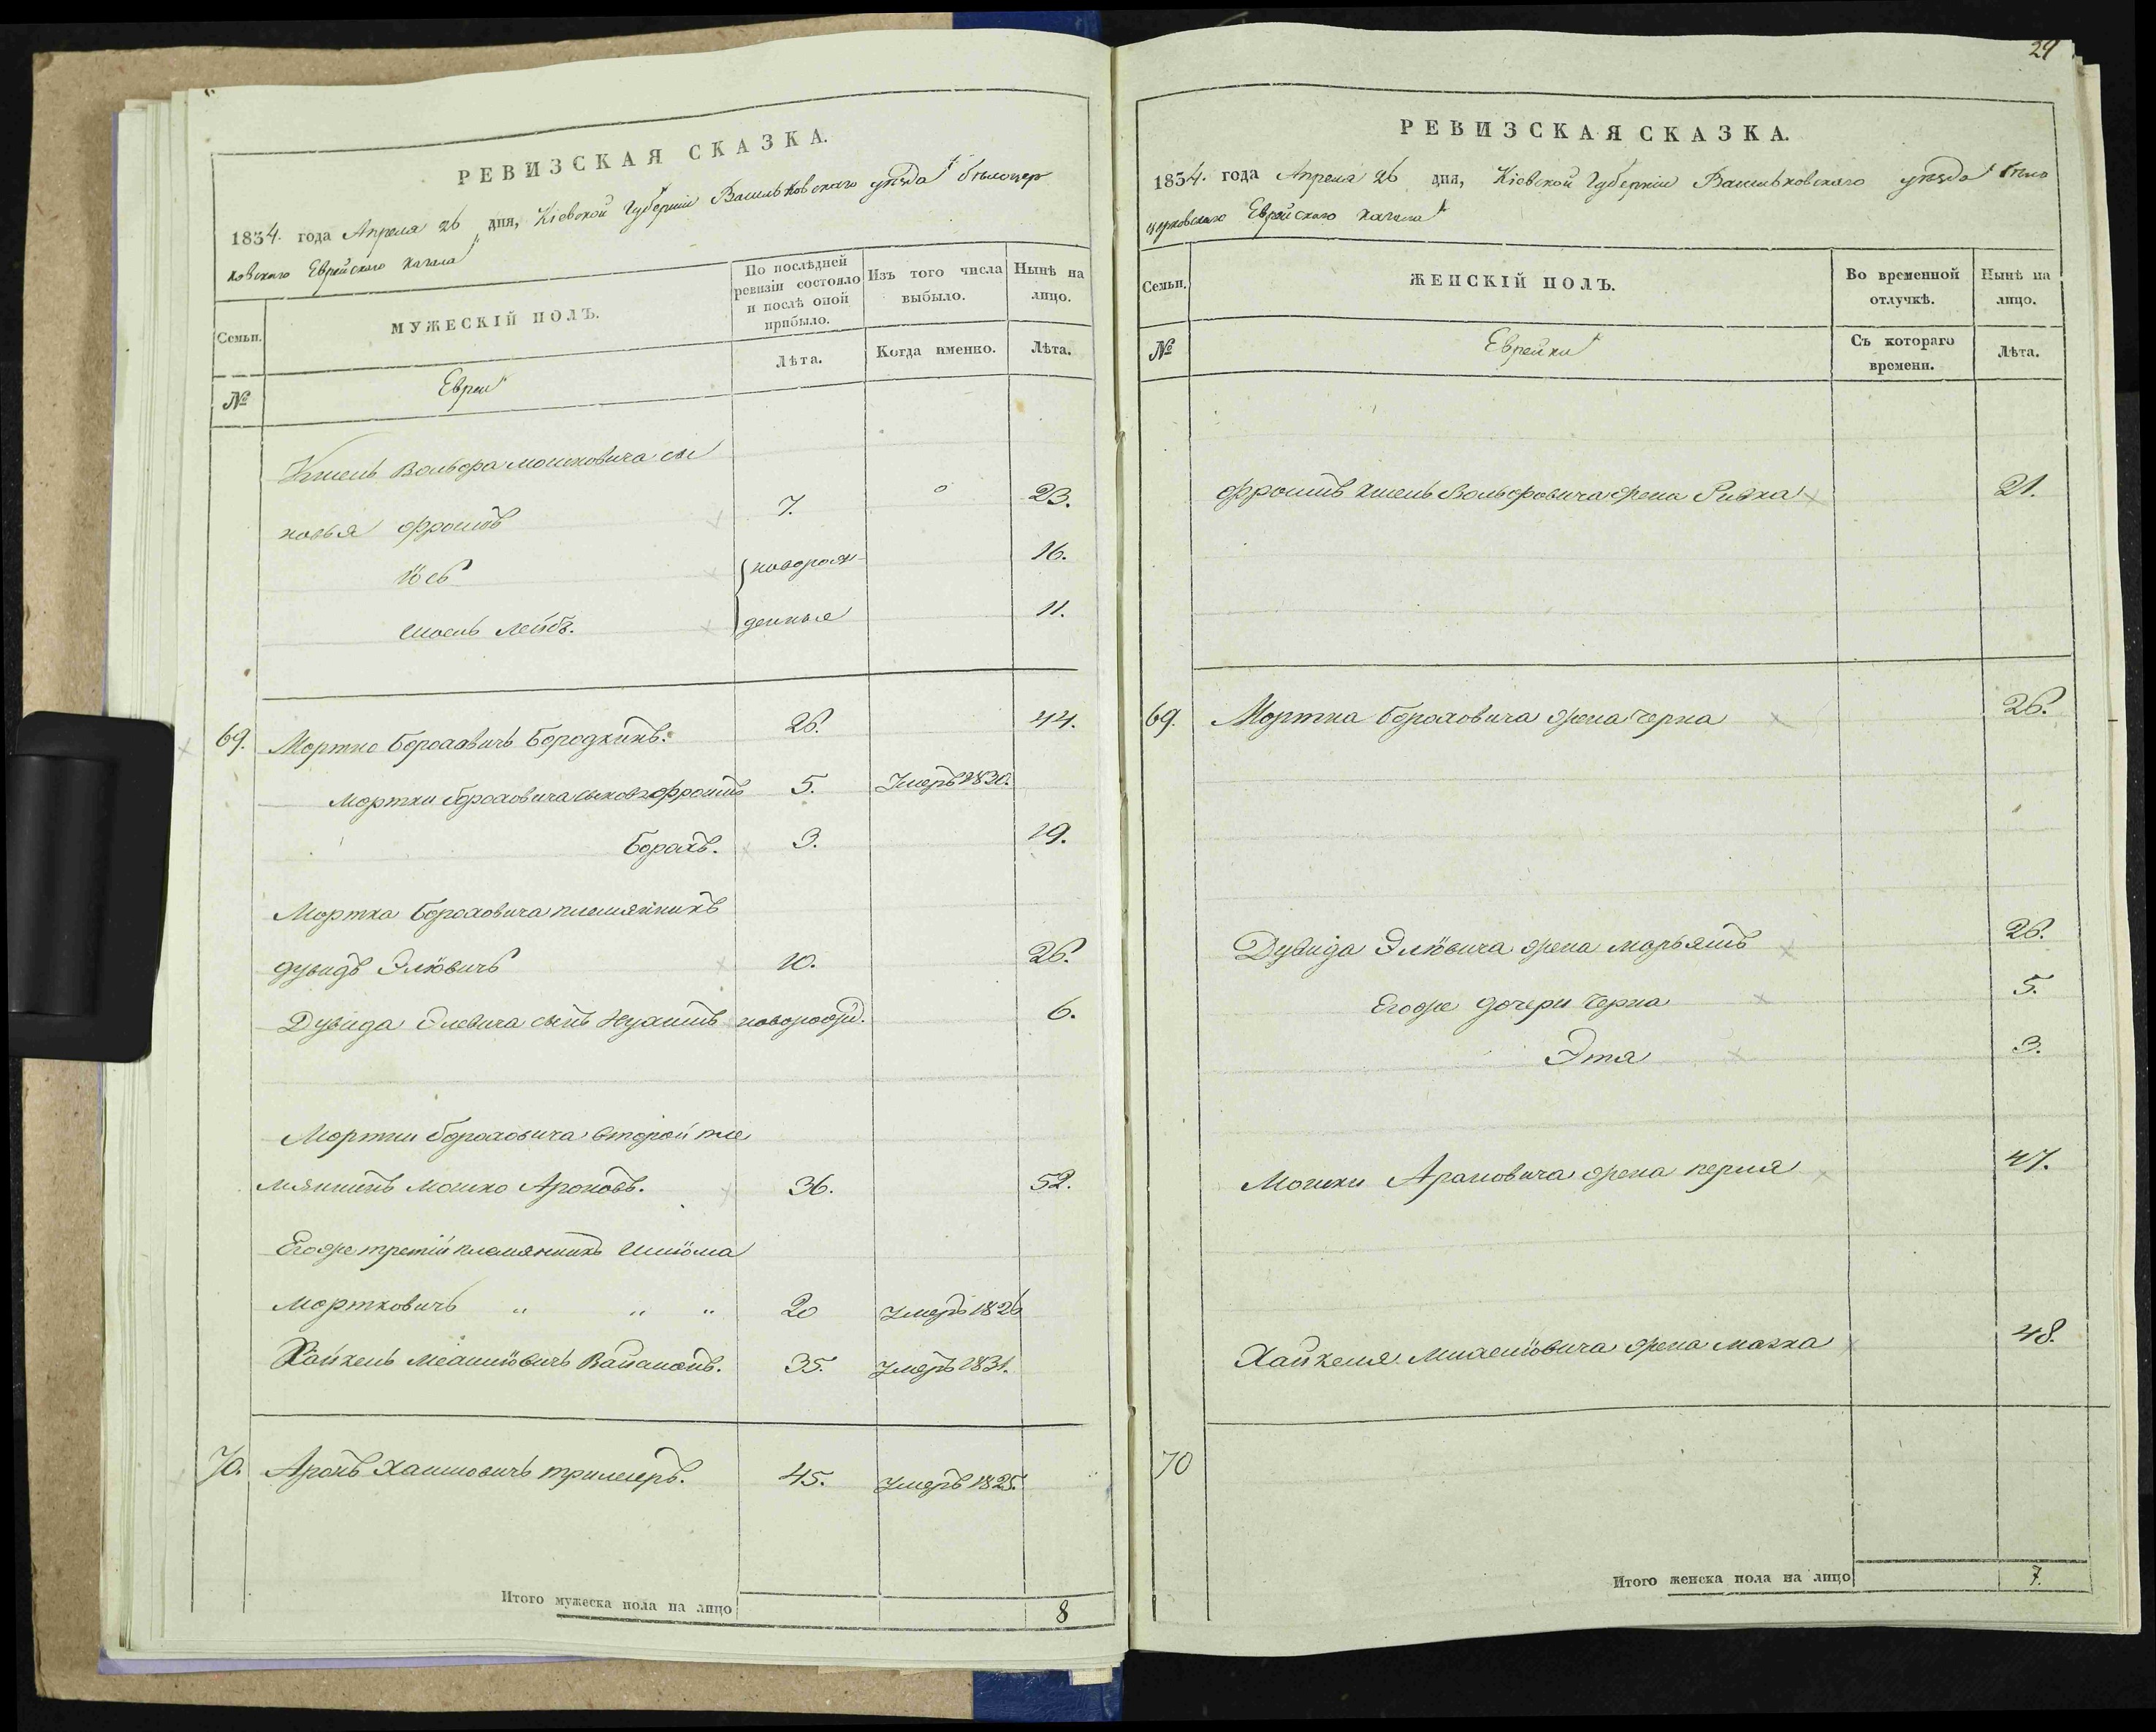 РЕВИЗСКАЯ СКАЗКА.
1834. года Апреля 26 дня, Кіевской Губерніи Васильковскаго уѣзда белоцер
ковскаго Еврейскаго кагала
Семьи.
МУЖЕСКІЙ ПОЛЪ.
По послѣдней ревизіи состояло и послѣ оной прибыло.
Изъ того числа выбыло.
Нынѣ на лицо.
№
Евреи
Лѣта.
Когда именно.
Лѣта.
Вольфа Мошковича сы
новья Фроимъ 7. 23.
Іось новорож 16.
Лейбъ. денные 11.
69. Мортко Бороховичъ Бородкинъ. 26. 44.
Мортки Бороховича сыновья Фроимъ 5. Умеръ 1830.
Борохъ. 3. 19.
Мортка Бороховича племянникъ
дувидъ Эліовичъ 10. 26.
Дувида Элевича сынъ Нухимъ новорожд. 6.
Мортки Бороховича второй пле
мянникъ Мошко Ароновъ. 36. 52.
Егоже третій племянникъ Шліома
Мортковичъ " " " 20 Умеръ 1826
Хайкель 35. Умеръ 1831.
70. Аронъ Хаимовичъ 45. Умеръ 1825.
Итого мужеска пола на лицо 8
29
РЕВИЗСКАЯ СКАЗКА.
1834. года Апреля 26 дня, Кіевской Губерніи Васильковскаго уѣзда бело
церковскаго Еврейскаго кагала
Семьи.
ЖЕНСКІЙ ПОЛЪ.
Во временной отлучкѣ.
Нынѣ на лицо.
№
Еврейки
Съ котораго времени.
Лѣта.
Фроимъ Вольфовича жена Ривка 21.
69. Мортка Бороховича жена Черна 26.
Дувида Эліовича жена Марьямъ 26.
Егоже дочери Черна 5.
Этя 3.
Мошки Арановича жена перля 47.
Хайкеля жена малка 48.
70
Итого женска пола на лицо 7.